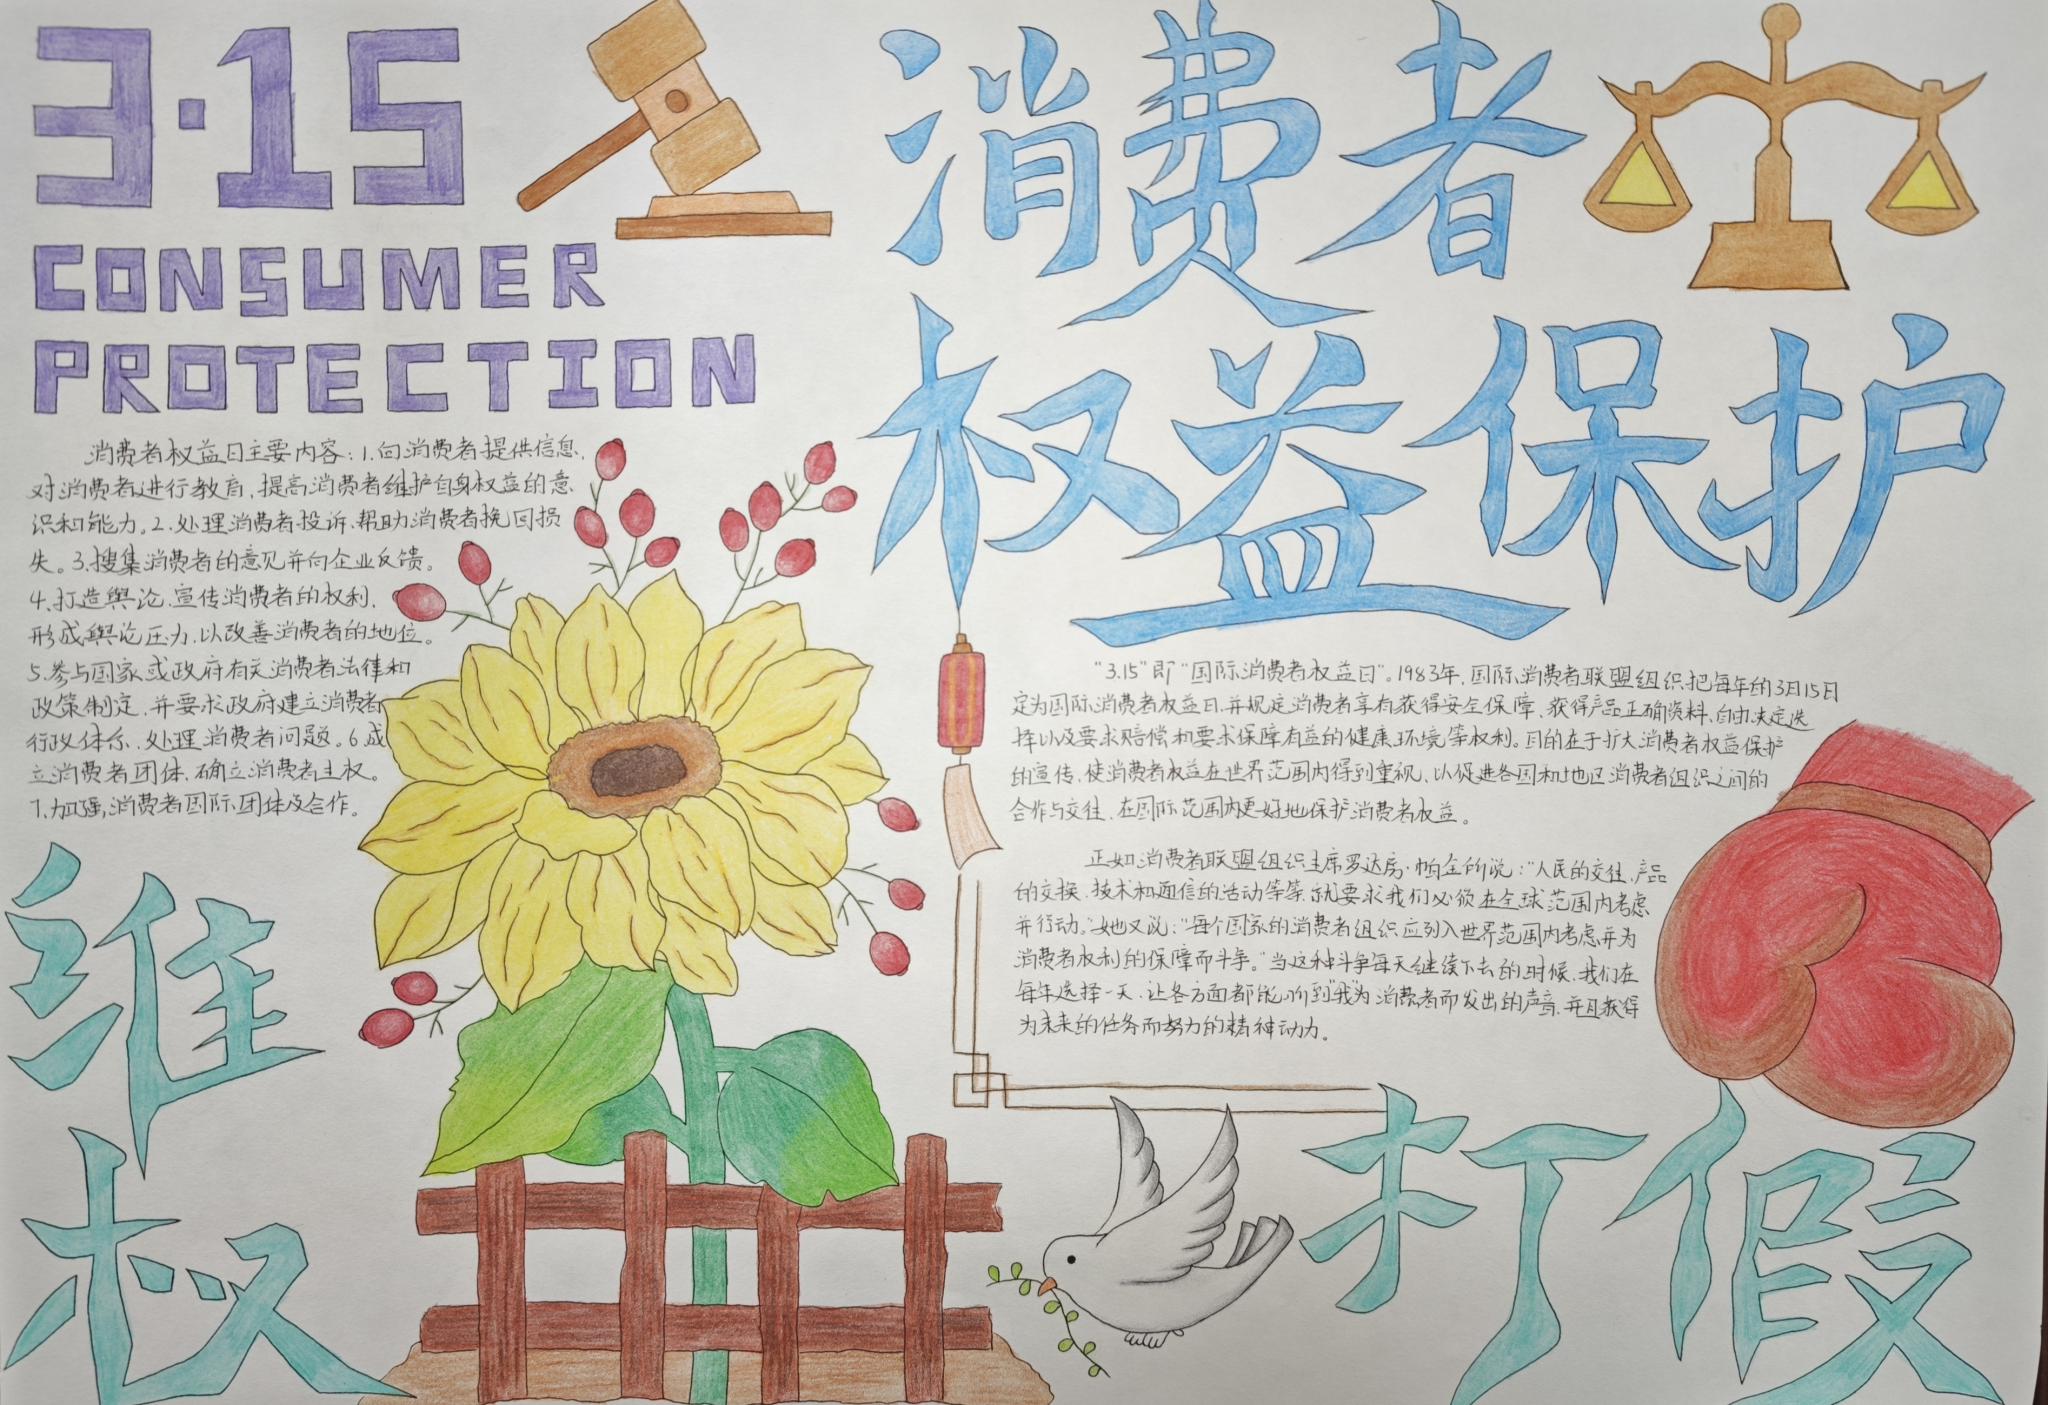 3·15
CONSUMER
PROTECTION
消费者
权益保护
消费者权益日主要内容：1.向消费者提供信息，
对消费者进行教育，提高消费者维护自身权益的意
识和能力。2.处理消费者投诉，帮助消费者挽回损
失。3.搜集消费者的意见并向企业反馈。
4.打造舆论，宣传消费者的权利，
形成舆论压力，以改善消费者的地位。
5.参与国家或政府有关消费者法律和
政策制定，并要求政府建立消费者
行政体系，处理消费者问题。6.成
立消费者团体，确立消费者主权。
7.加强消费者国际团体及合作。
"3.15"即"国际消费者权益日"。1983年，国际消费者联盟组织把每年的3月15日
定为国际消费者权益日，并规定消费者享有获得安全保障、获得产品正确资料、自由决定选
择以及要求赔偿和要求保障有益的健康环境等权利。目的在于扩大消费者权益保护
的宣传，使消费者权益在世界范围内得到重视，以促进各国和地区消费者组织之间的
合作与交往，在国际范围内更好地保护消费者权益。
正如消费者联盟组织主席罗达房·帕金所说："人民的交往，产品
的交换，技术和通信的活动等等，就要求我们必须在全球范围内考虑
并行动。"她又说："每个国家的消费者组织应列入世界范围内考虑并为
消费者权利的保障而斗争。"当这种斗争每天继续下去的时候，我们在
每年选择一天，让各方面都能听到"我"为消费者而发出的声音，并且获得
为未来的任务而努力的精神动力。
维
权
打假